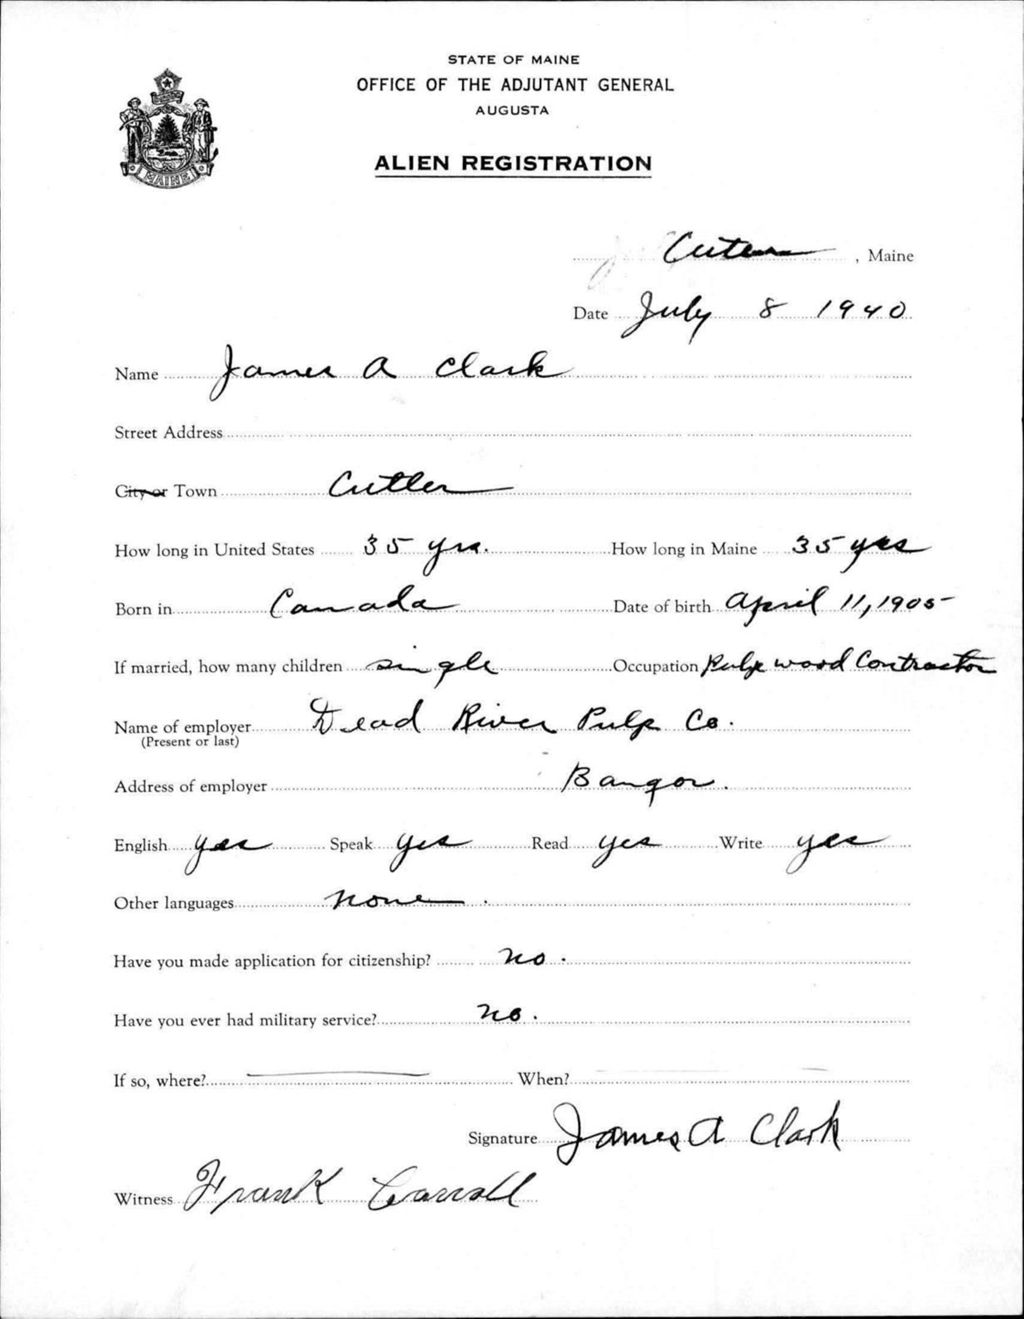 STATE OF MAINE
OFFICE OF THE ADJUTANT GENERAL
AUGUSTA
MAINE
ALIEN REGISTRATION
Cutler, Maine
Date July 8 1940
Name James A Clark
Street Address
City or Town Cutler
How long in United States 35 yrs. How long in Maine 35 yrs
Born in Canada Date of birth April 11, 1905
If married, how many children single Occupation Pulp wood Contractor
Name of employer Dead River Pulp Co.
(Present or last)
Address of employer Bangor.
English yes Speak yes Read yes Write yes
Other languages none.
Have you made application for citizenship? no.
Have you ever had military service? no.
If so, where? When?
Signature James A Clark
Witness Frank Carroll